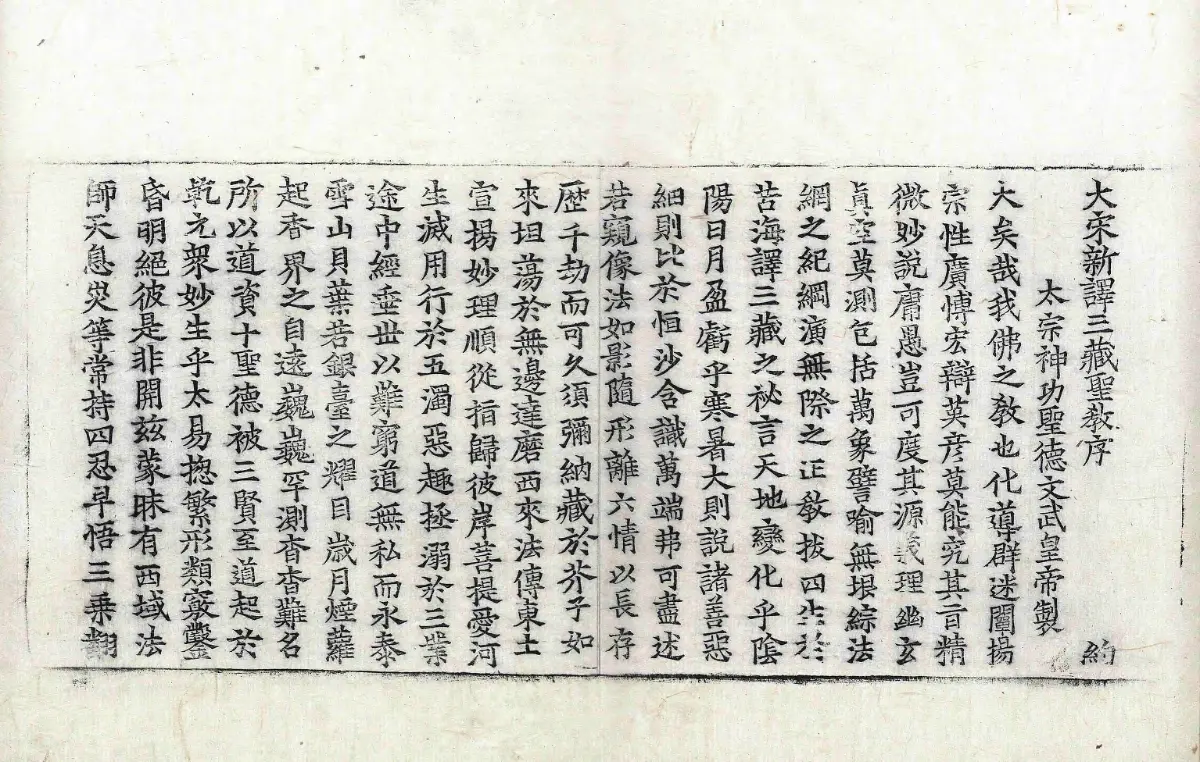 大宋新譯三藏聖教序 約
太宗神功聖德文武皇帝製
大矣哉我佛之教也化導群迷闡揚
宗性廣愽宏辯英彦莫能究其旨精
微妙說庸愚豈可度其源義理幽玄
真空莫測包括萬象譬喻無垠綜法
網之紀綱演無際之正教拔四生於
苦海譯三藏之祕言天地變化乎陰
陽日月盈虧乎寒暑大則說諸善惡
細則比於恒沙含識萬端弗可盡述
若窺像法如影隨形離六情以長存
歷千劫而可久須彌納藏於芥子如
來坦蕩於無邊達磨西來法傳東土
宣揚妙理順從指歸彼岸菩提愛河
生滅用行於五濁惡趣拯溺於三業
途中經垂世以難窮道無私而永泰
雪山貝葉若銀臺之耀目歲月煙蘿
起香界之自遠巍巍罕測杳杳難名
所以道資十聖德被三賢至道起於
乾元衆妙生乎太易揔繁形類竅鑿
昏明絕彼是非開茲蒙昧有西域法
師天息災等常持四忍早悟三乘翻